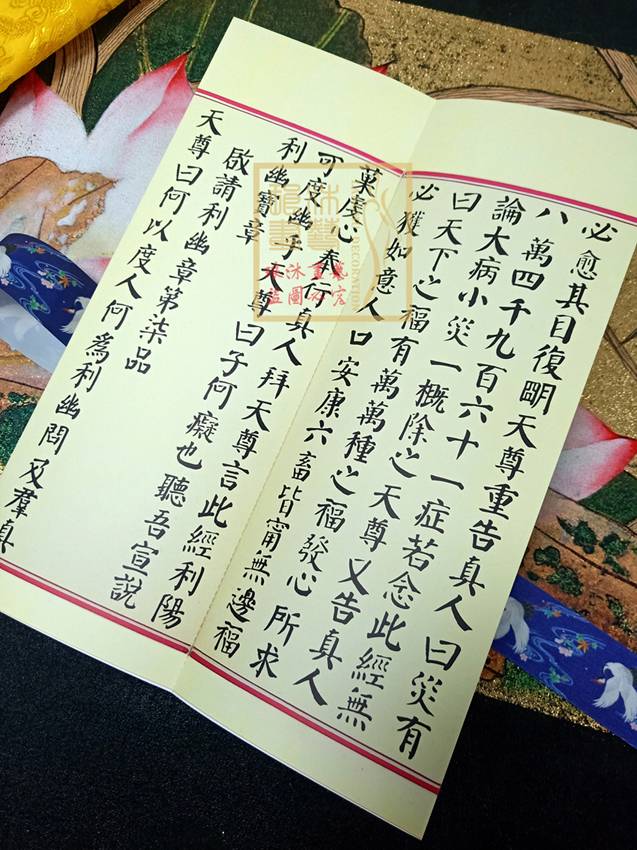 必愈其目復眀天尊重告真人曰災有
八萬四千九百六十一症若念此經無
論大病小災一概除之天尊又告真人
曰天下之福有萬萬種之福發心所求
必獲如意人口安康六畜皆甯無邊福
菓虔心奉行真人拜天尊言此經利陽
可度幽乎天尊曰子何癡也聽吾宣説
利幽寶章
啟請利幽章第柒品
天尊曰何以度人何爲利幽問及羣真
DECORATION
盜圖必究